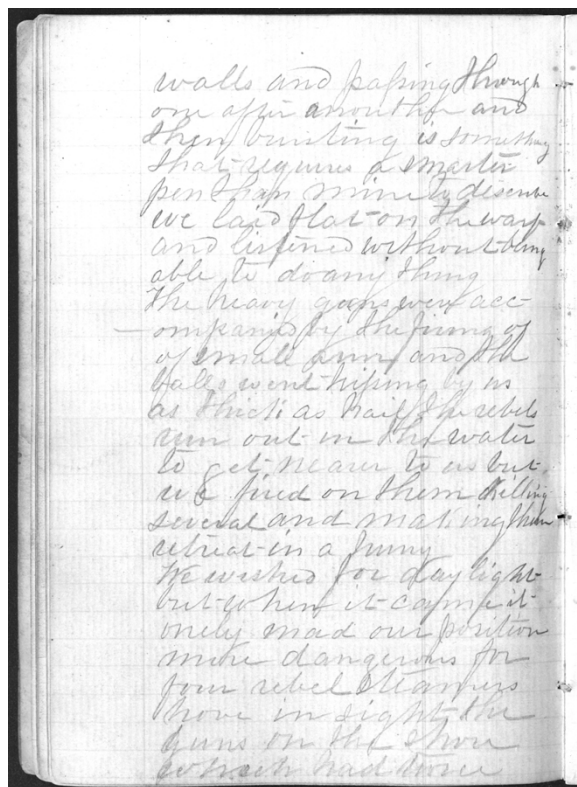 walls and passing through
one after annouther and
then bursting is something
that requires a smarter
pen than mine to describe
we laid flat on the warf
and listened without being
able to do any thing
The heavy guns were acc-
ompanied by the firing of
of small arms and the
balls went hissing by us
as thick as hail the rebels
run out in the water
to get nearer to us but
we fired on them killing
several and making them
retreat in a hurry
We wished for daylight
but when it came it
onely mad our position
more dangerous for
four rebel steamers
hove in sight the
guns on the shore
which had